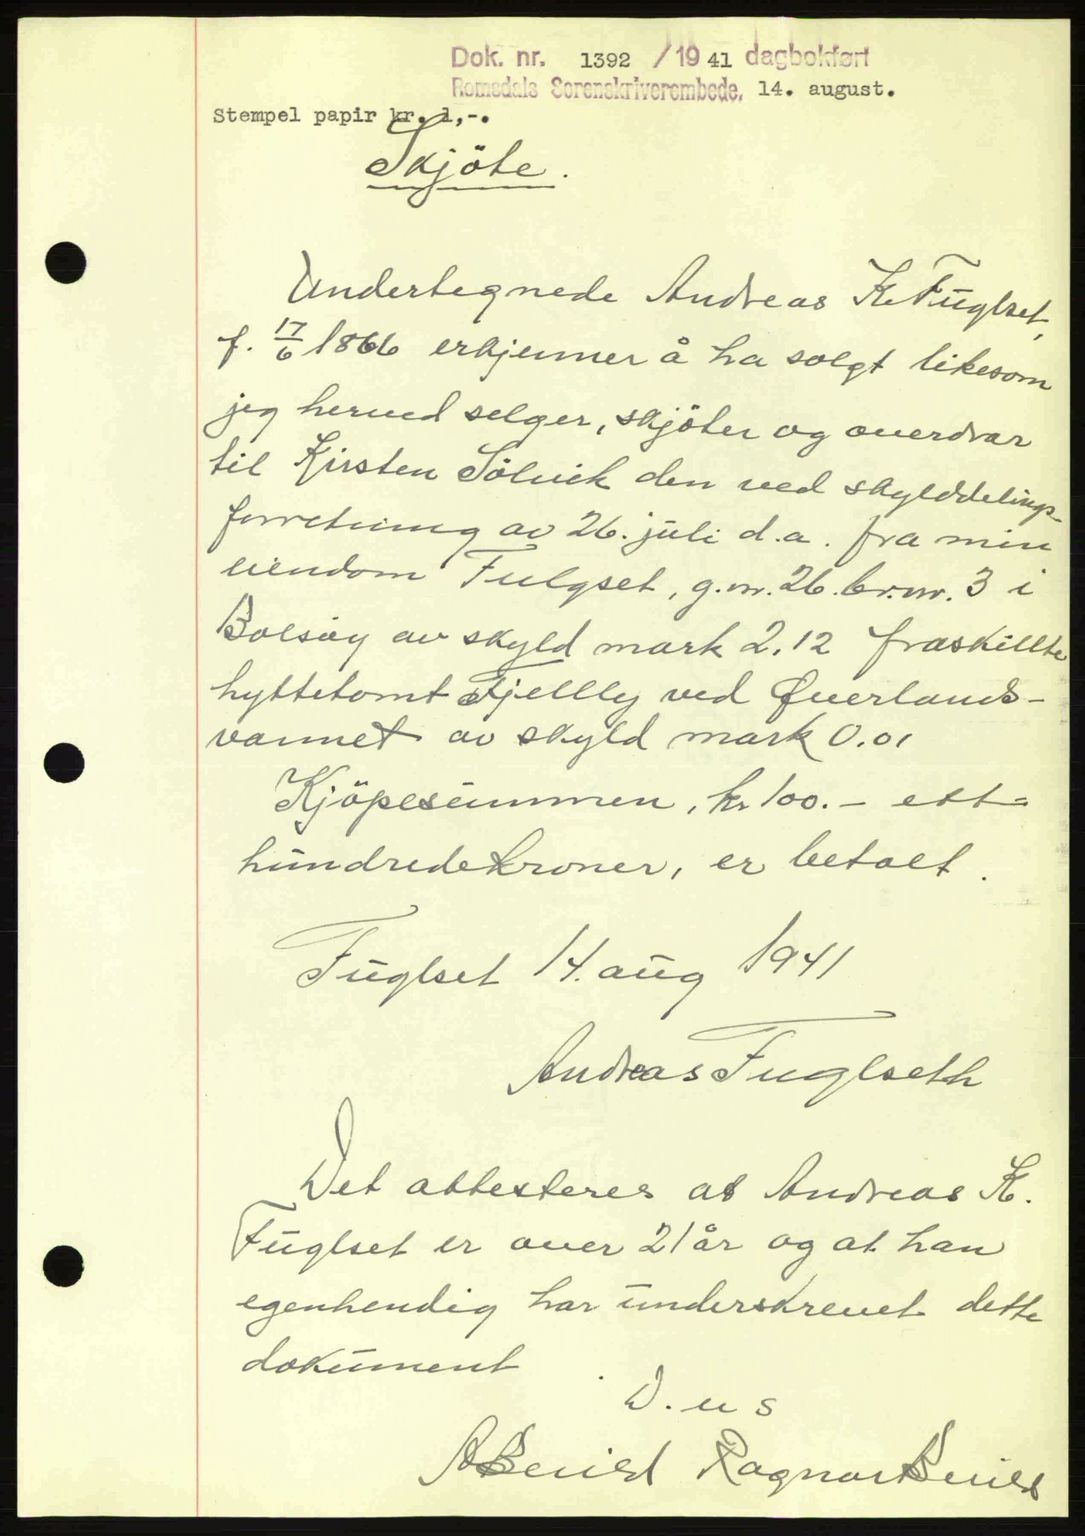 Dok. nr. 1392 /1941 dagbokført
Romsdals Sorenskriverembede, 14. august.
Stempel papir kr. 1,-.
Skjöte.
Undertegnede Andreas K. Fuglset,
f. 17/6 1866 erkjenner å ha solgt likesom
jeg herved selger, skjöter og overdrar
til Kirsten Sölvik den ved skylddelings-
forretning av 26. juli d.a. fra min
eiendom Fulgset, g.nr. 26. br.nr. 3 i
Bolsöy av skyld mark 2.12 fraskillte
hyttetomt Fjellly ved Øverlands-
vannet av skyld mark 0.01
Kjöpesummen, kr 100.- ett-
hundredekroner, er betalt.
Fuglset 14. aug 1941
Andreas Fuglseth
Det attesteres at Andreas K.
Fuglset er over 21 år og at han
egenhendig har underskrevet dette
dokument
D. u s
Ragnar